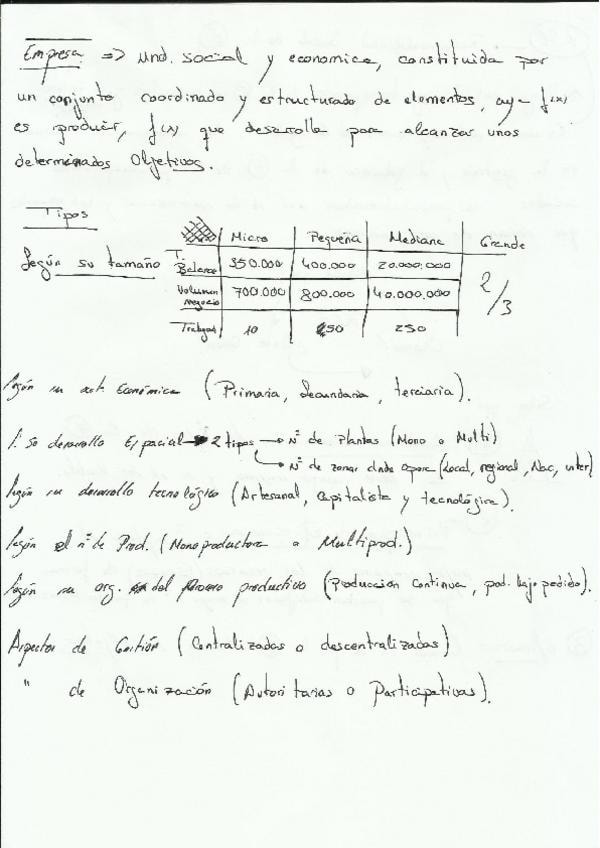 Empresa => Und. social y economica, constituida por
un conjunto coordinado y estructurado de elementos, cuya f(x)
es producir, f(x) que desarrolla para alcanzar unos
determinados Objetivos.
Tipos
Según su tamaño
Micro Pequeña Mediana Grande
T. Balance 350.000 400.000 20.000.000 2/3
Volumen negocio 700.000 800.000 40.000.000
Trabajad 10 50 250
Según su act. Económica (Primaria, Secundaria, terciaria).
S. So desarollo Espacial → 2 tipos → Nº de Plantas (Mono o Multi)
→ Nº de zonas donde opera (Local, regional, Nac, inter)
Según su desarrollo tecnológico (Artesanal, Capitalista y tecnológica).
Según el nº de Prod. (Monoproductora o Multiprod.)
Según su org. del proceso productivo (Producción Continua, prod. bajo pedido).
Aspectos de Gestión (Centralizadas o descentralizadas)
" de Organización (Autoritarias o Participativas).